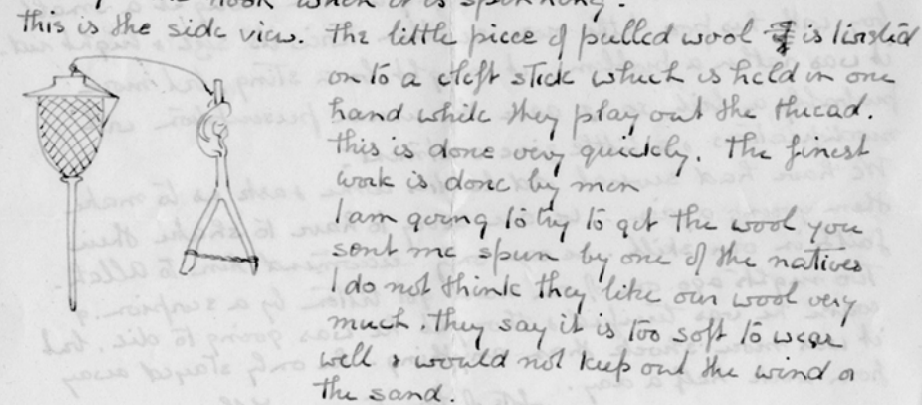 the hook when it is spinning.
this is the side view. The little piece of pulled wool is twisted
on to a cleft stick which is held in one
hand while they play out the thread.
This is done very quickly. The finest
work is done by men
I am going to try to get the wool you
sent me spun by one of the natives
I do not think they like our wool very
much. They say it is too soft to wear
well & would not keep out the wind or
the sand.